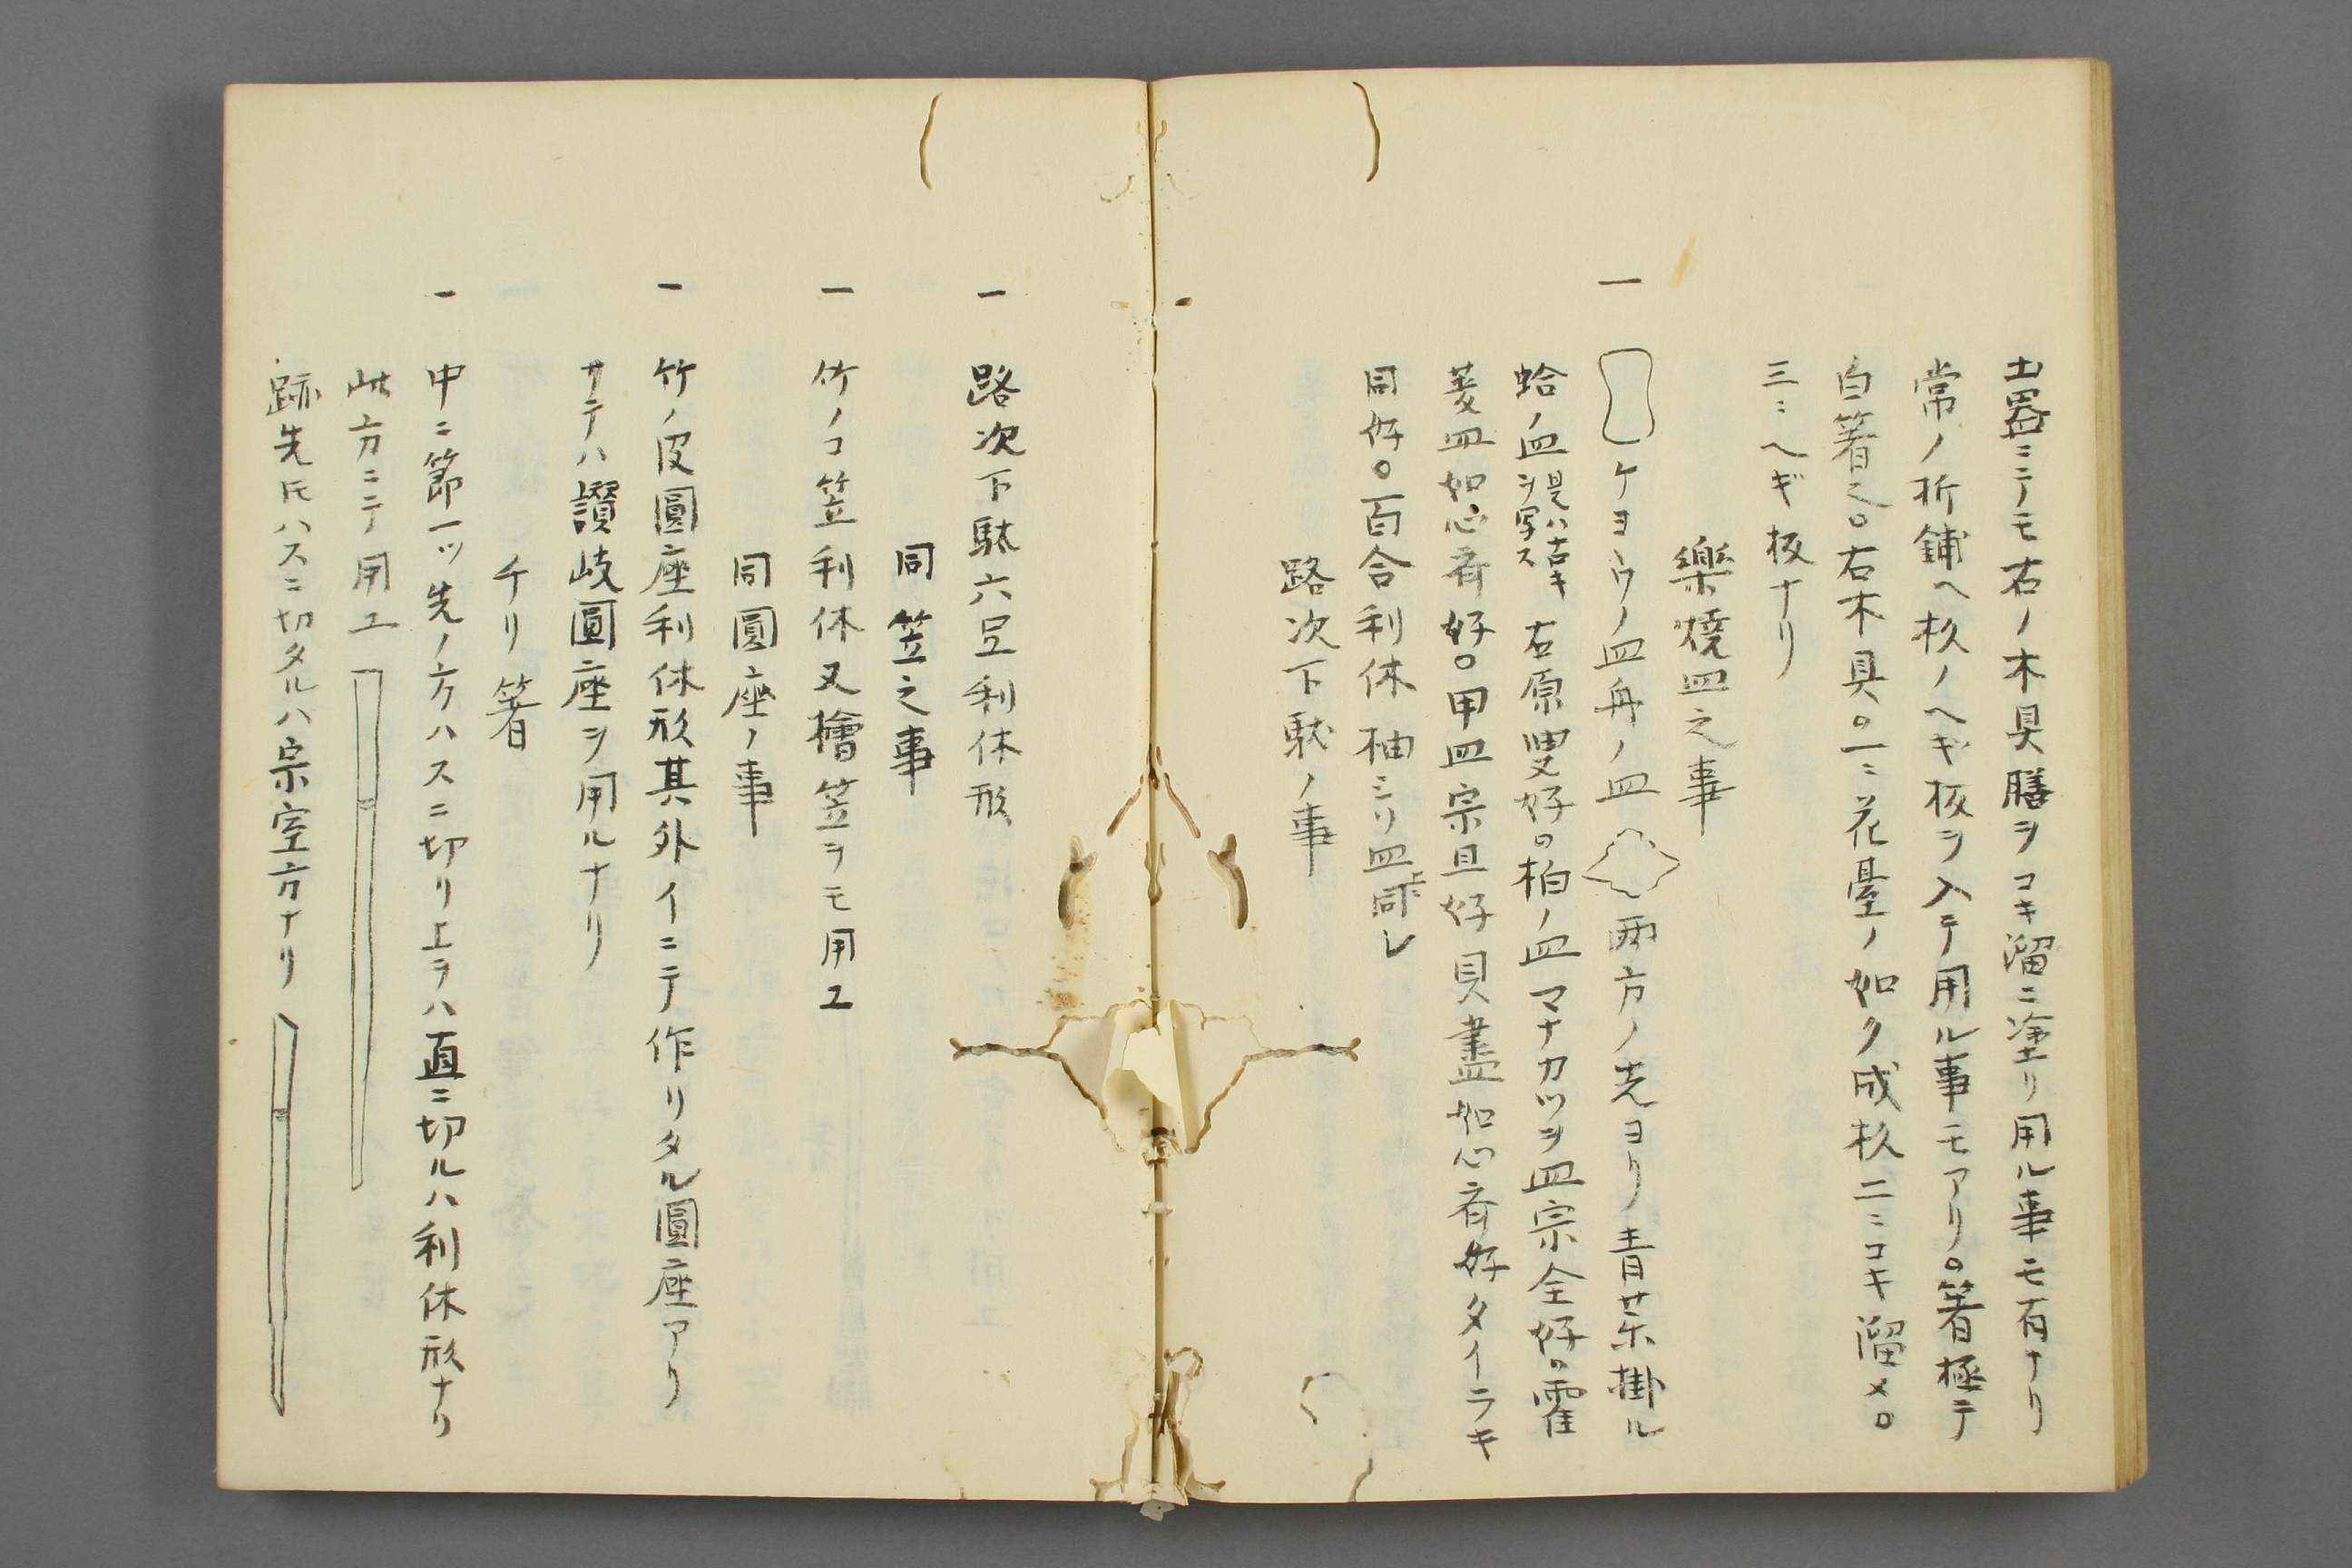 土器ニテモ右ノ木具膳ヲコキ溜ニ塗リ用ル事モ有ナリ
常ノ折鋪ヘ杦ノヘギ板ヲ入テ用ル事モアリ。箸極テ
白箸也。右木具。一ニ花臺ノ如ク成杦二ニコキ溜メ。
三ニヘギ板ナリ
樂焼皿之事
一 ケヨウノ皿舟ノ皿 両方ノ先ヨリ青茶掛ル
蛤ノ皿是ハ古キヲ写ス 右原叟好。柏ノ皿マナカツヲ皿宗全好。霍
菱皿如心斉好。甲皿宗旦好貝盡如心斉好タイラキ
同好。百合利休柚ミリ皿同上シ
路次下駄ノ事
一 路次下駄六足利休形
同笠之事
一 竹ノコ笠利休又檜笠ヲモ用ユ
同圓座ノ事
一 竹ノ皮圓座利休形其外イニテ作リタル圓座アリ
サテハ讃岐圓座ヲ用ルナリ
チリ箸
一 中ニ節一ッ先ノ方ハスニ切リエヲハ直ニ切ルハ利休形ナリ
此方ニテ用エ
跡先氏ハスニ切タルハ宗室方ナリ